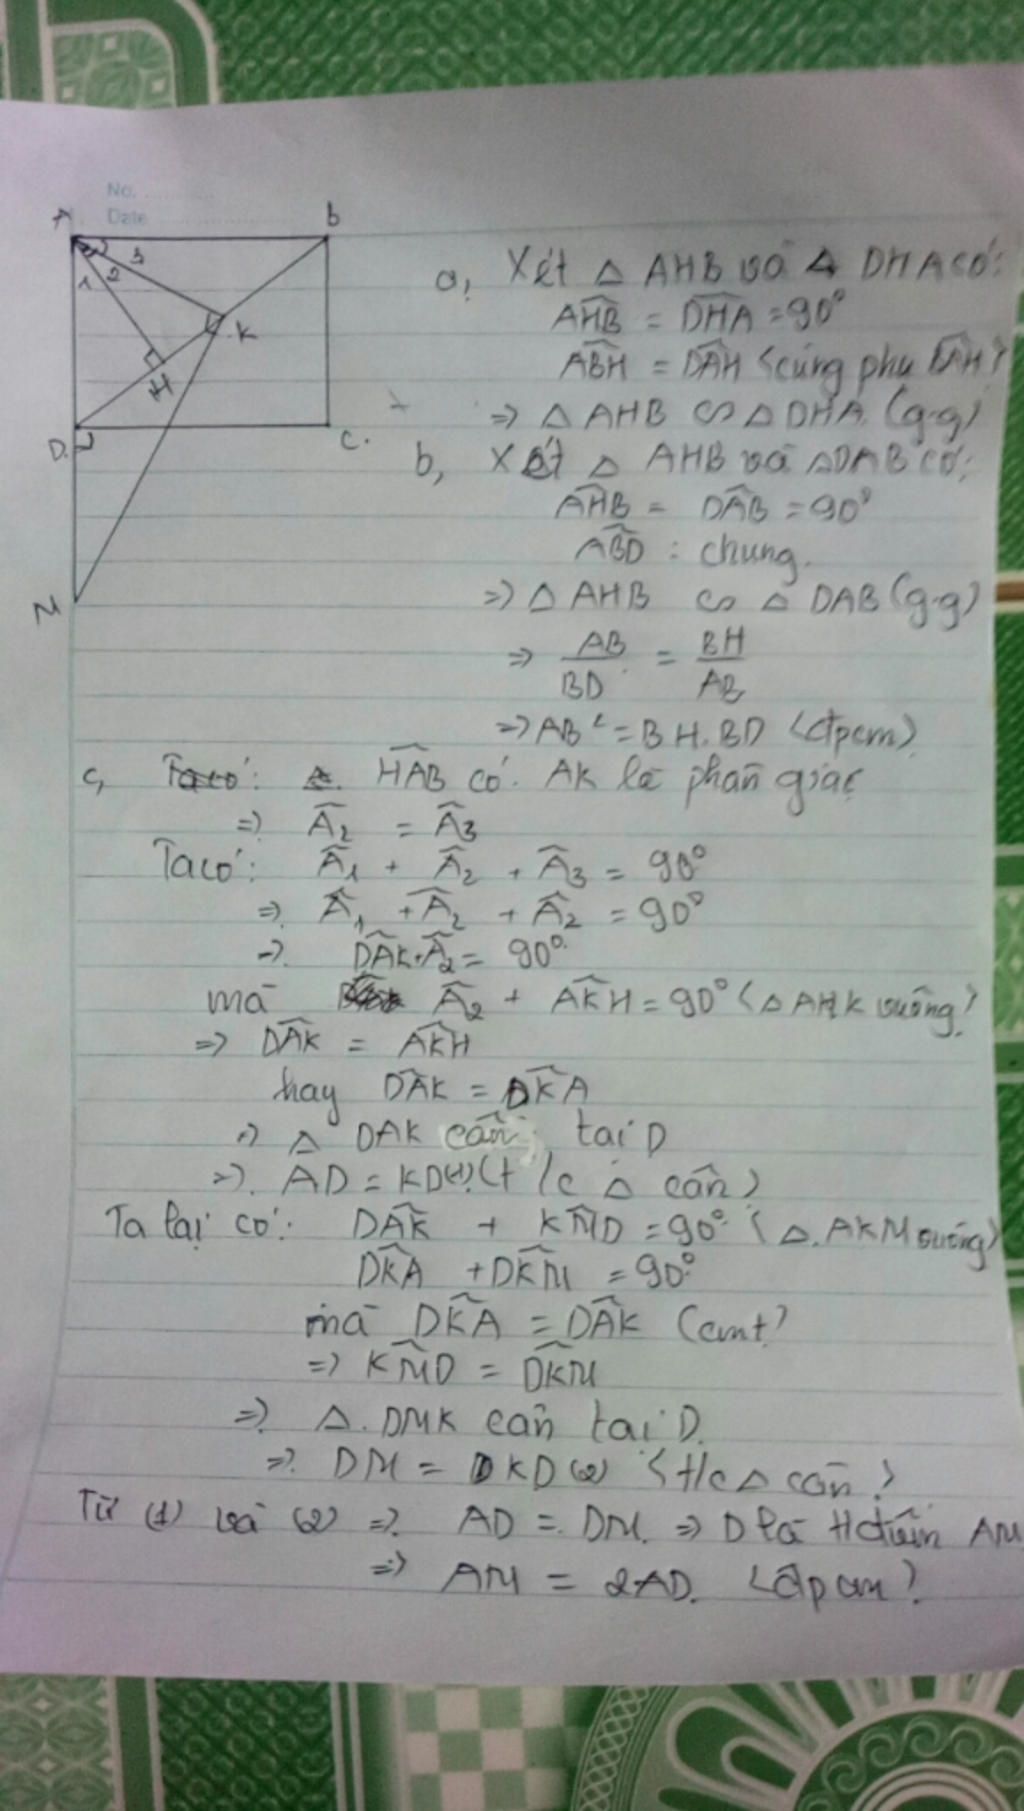 No.
Date
A
B
1 2 3
K
H
D
C.
M
a, Xét △ AHB và △ DHA có:
AĤB = DĤA = 90°
AB̂H = DÂH (cùng phụ BÂH)
=> △ AHB ∽ △ DHA (g.g)
b, Xét △ AHB và △DAB có:
AĤB = DÂB = 90°
AB̂D : chung.
=> △ AHB ∽ △ DAB (g.g)
=> AB/BD = BH/AB
=> AB² = BH.BD (đpcm)
c, HÂB có AK là phân giác
=> Â₂ = Â₃
Ta có: Â₁ + Â₂ + Â₃ = 90°
=> Â₁ + Â₂ + Â₂ = 90°
=> DÂK + Â₂ = 90°
mà Â₂ + AK̂H = 90° (△ AHK vuông)
=> DÂK = AK̂H
hay DÂK = DK̂A
=> △ DAK cân tại D
=> AD = KD (1) (t/c △ cân)
Ta lại có: DÂK + KM̂D = 90° (△ AKM vuông)
DK̂A + DK̂M = 90°
mà DK̂A = DÂK (cmt)
=> KM̂D = DK̂M
=> △ DMK cân tại D.
=> DM = KD (2) (t/c △ cân)
Từ (1) và (2) => AD = DM. => D là tđiểm AM
=> AM = 2AD. (đpcm)